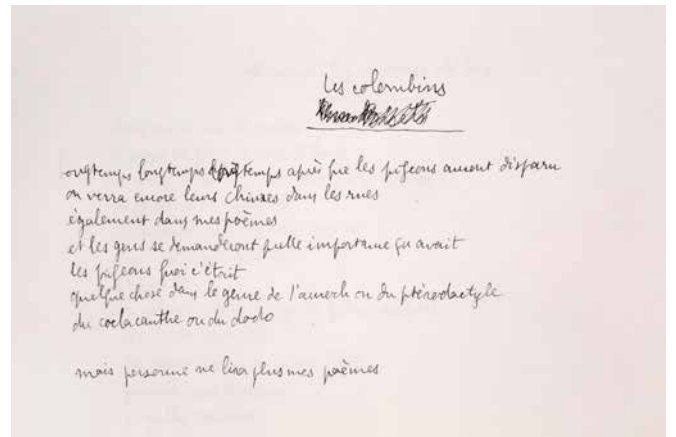 Les colombins
longtemps longtemps longtemps après que les pigeons auront disparu
on verra encore leurs chiures dans les rues
également dans mes poèmes
et les gens se demanderont quelle importance ça avait
les pigeons quoi c'était
quelque chose dans le genre de l'auroch ou du ptérodactyle
du coelacanthe ou du dodo
mais personne ne lira plus mes poèmes